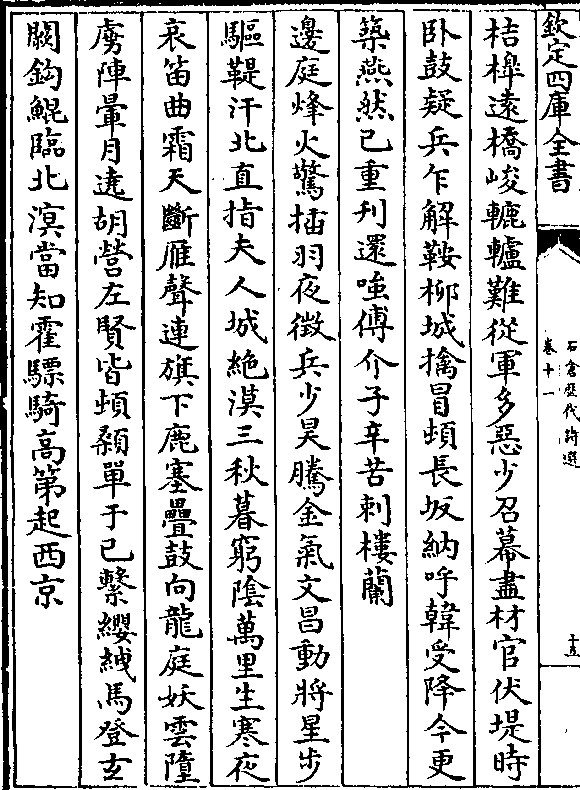 欽定四庫全書
石倉歷代詩選
卷十一
十三
桔橰遠橋峻轆轤難從軍多惡少召募盡材官伏堤時
卧鼓疑兵乍解鞍柳城擒冒頓長坂納呼韓受降今更
築燕然已重刋還嗤傅介子辛苦刺樓蘭
邊庭烽火驚揷羽夜徵兵少昊騰金氣文昌動將星步
驅鞮汗北直指夫人城絶漠三秋暮窮陰萬里生寒夜
哀笛曲霜天斷雁聲連旗下鹿塞疊鼓向龍庭妖雲墮
虜陣暈月遶胡營左賢皆頓顙單于已繫纓絏馬登玄
闕鈎鯤臨北溟當知霍驃騎高第起西京